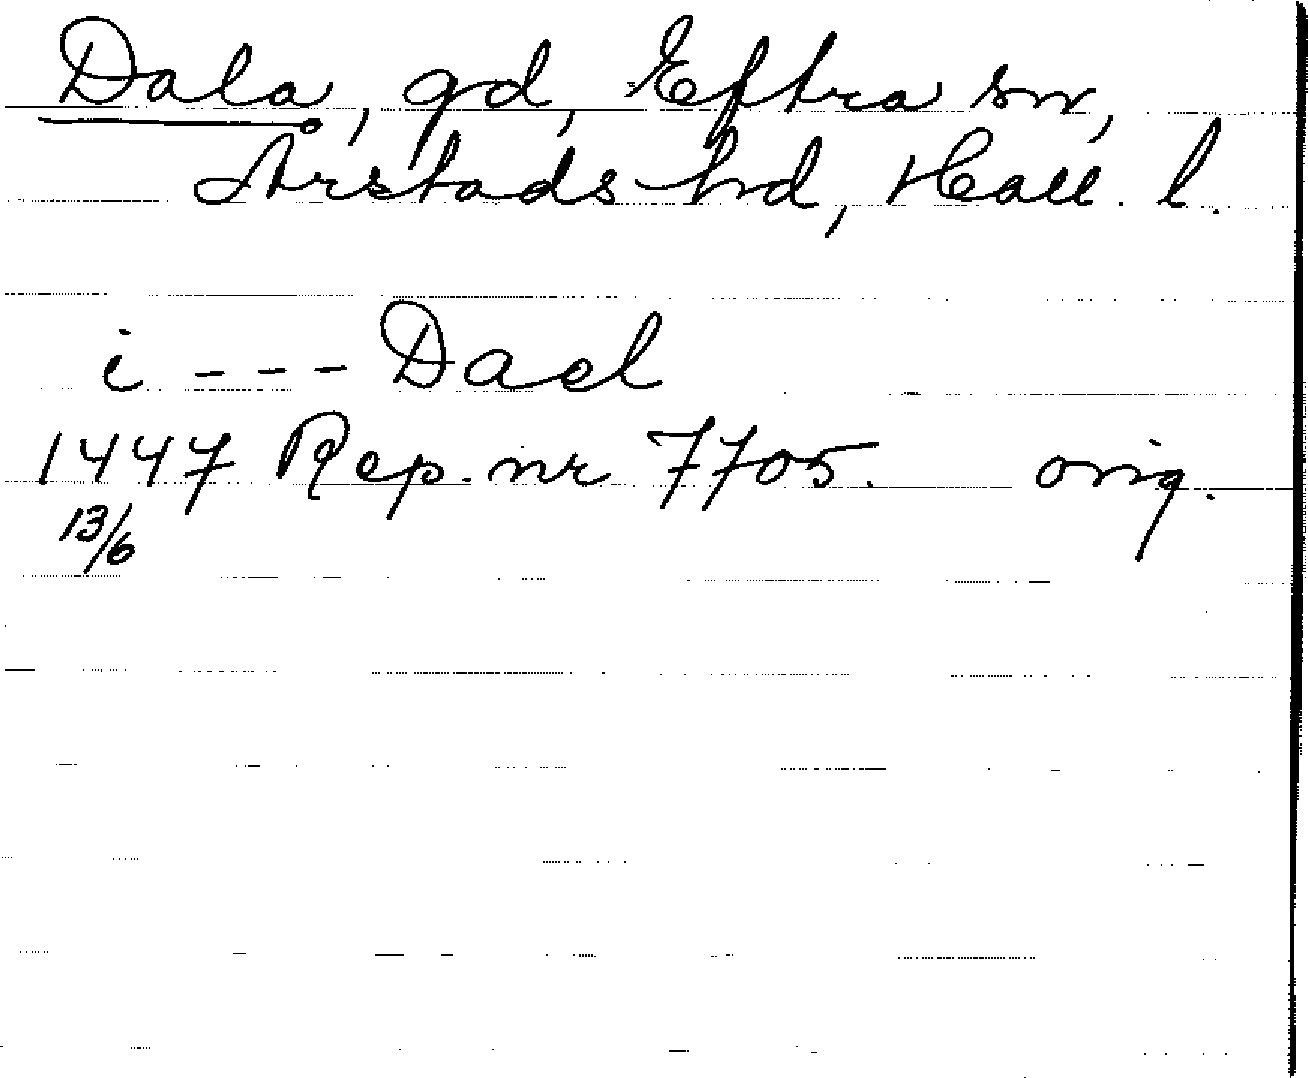 Dala, gd, Eftra sn,
Årstads hd, Hall. l.
i --- Dael
1447 Rep. nr 7705. orig.
13/6